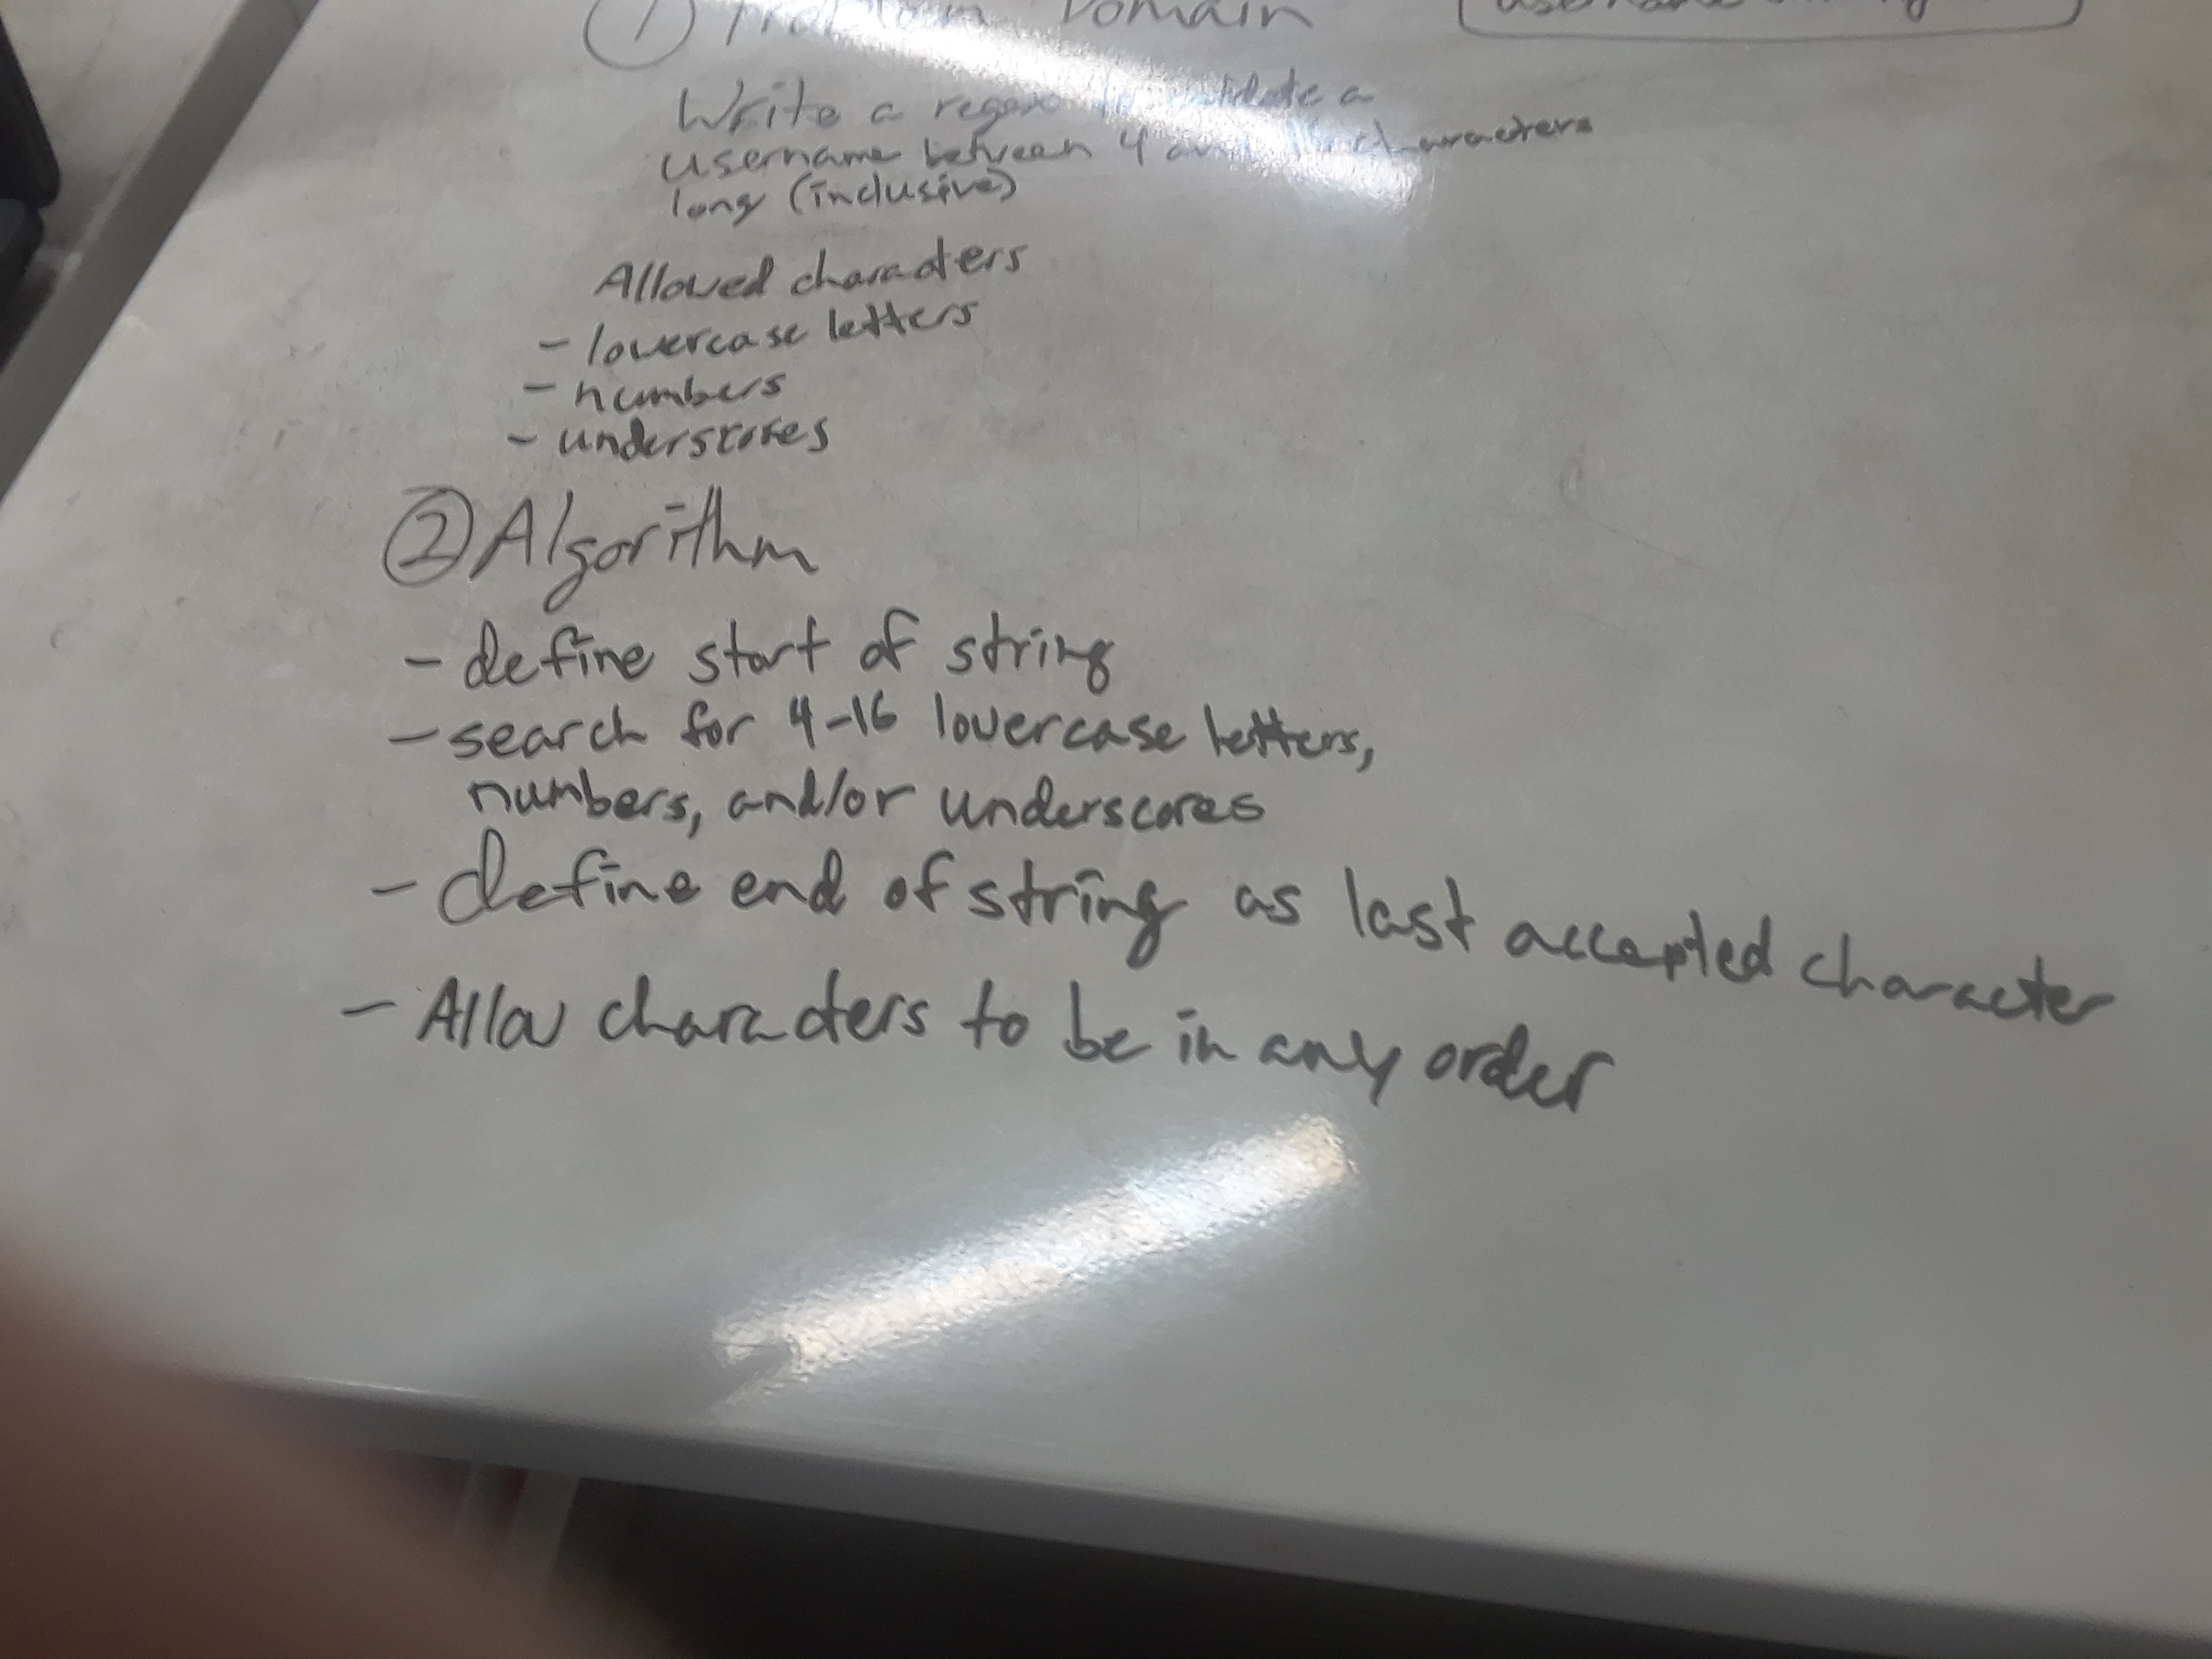 ① Problem Domain
username
Write a regex to validate a
username between 4 and 16 characters
long (inclusive)
Allowed characters
- lowercase letters
- numbers
- underscores
② Algorithm
- define start of string
- search for 4-16 lowercase letters,
numbers, and/or underscores
- define end of string as last accepted character
- Allow characters to be in any order